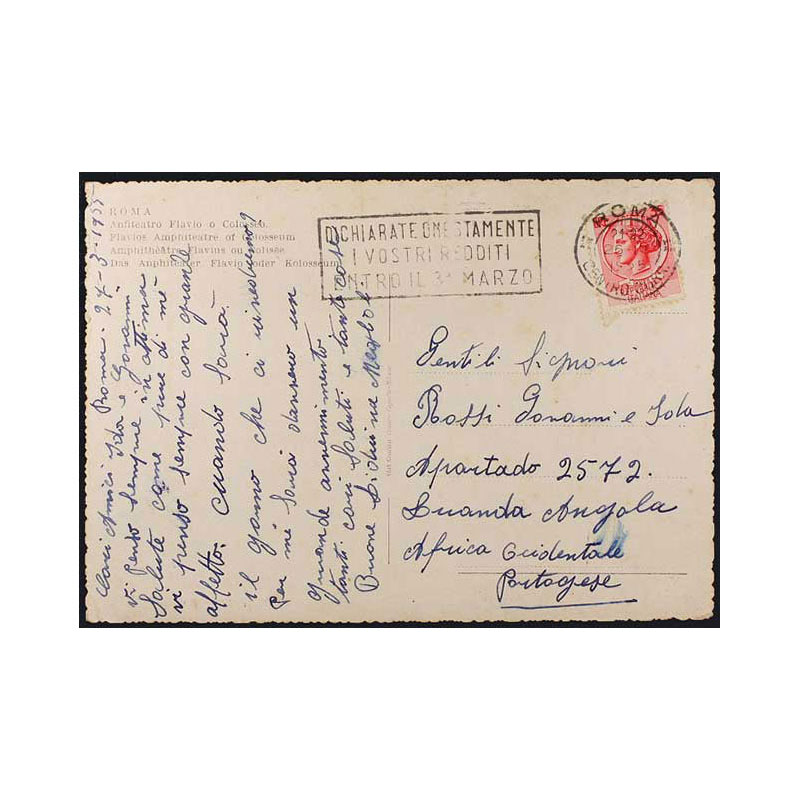 ROMA
Anfiteatro Flavio o Colosseo.
Flavios Amphiteatre of Colosseum
Amphithéâtre Flavius ou Colisée.
Das Anphiteater Flavio oder Kolosseum
DICHIARATE ONESTAMENTE
I VOSTRI REDDITI
ENTRO IL 31 MARZO
ROMA
CENTRO
Roma - 24-3-1955
Cari Amici e Giovanni
vi Penso sempre in ottima
Salute come pure di me
vi penso sempre con grande
affetto. Cuando Sarà
il giorno che ci
Per me Sarà davvero un
Grande
tanti cari Saluti e tante cose
Buone
Gentili Signori
Rossi Giovanni e Isola
Apartado 2572.
Luanda Angola
Africa Occidentale
Portogese